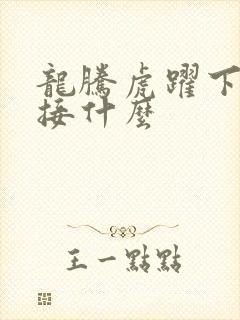 龍騰虎躍下
接什麼
王一點點